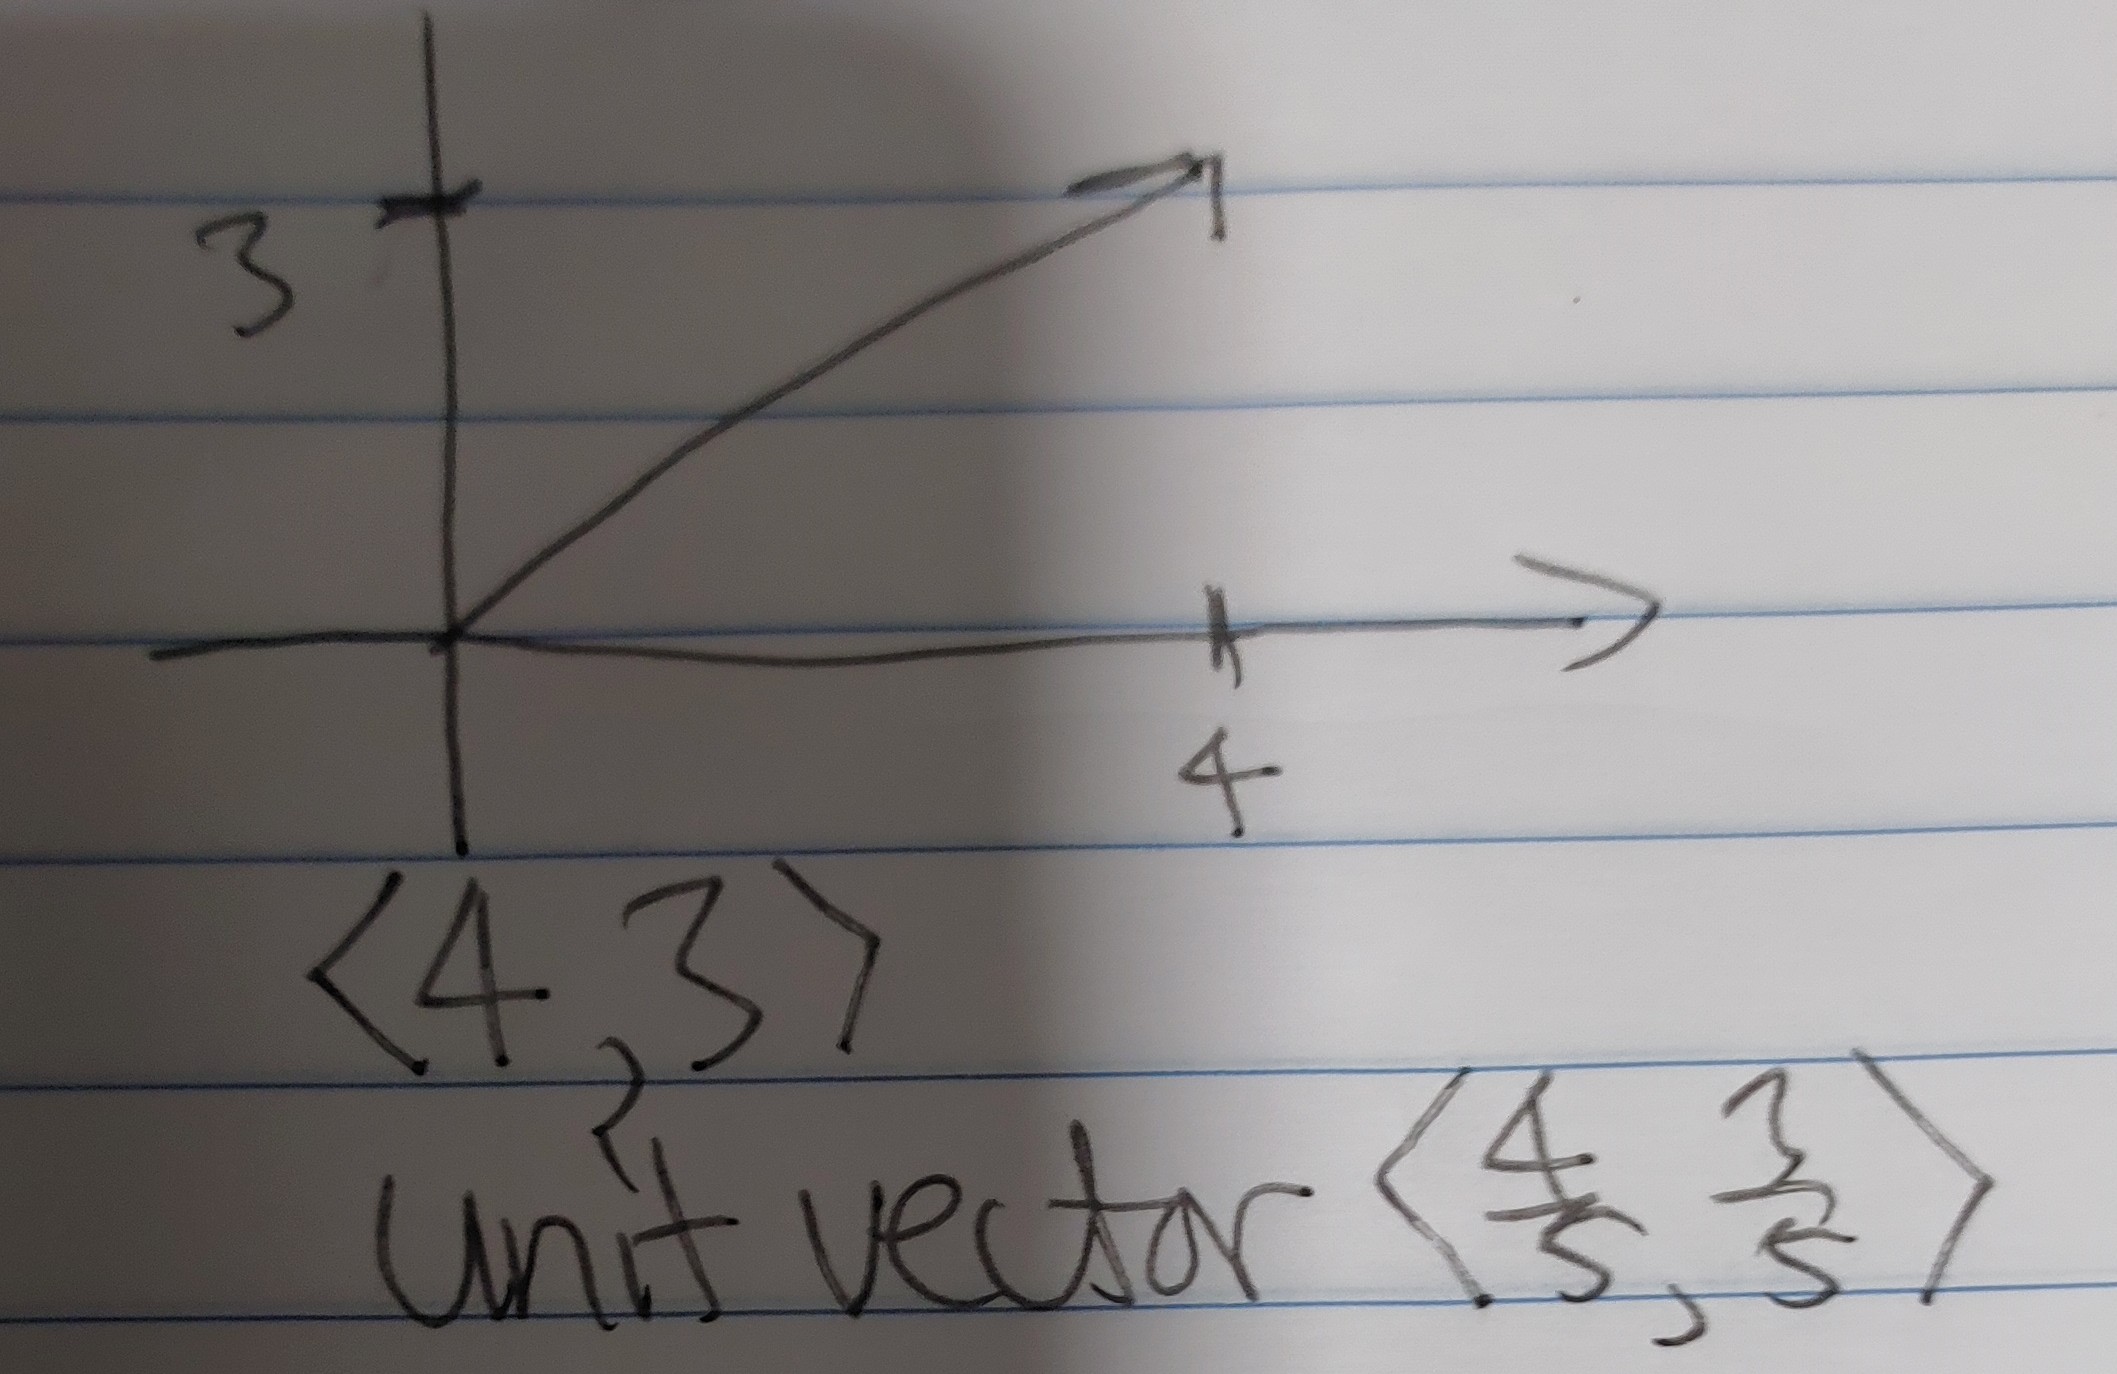 3
4
⟨4,3⟩
unit vector ⟨4/5, 3/5⟩